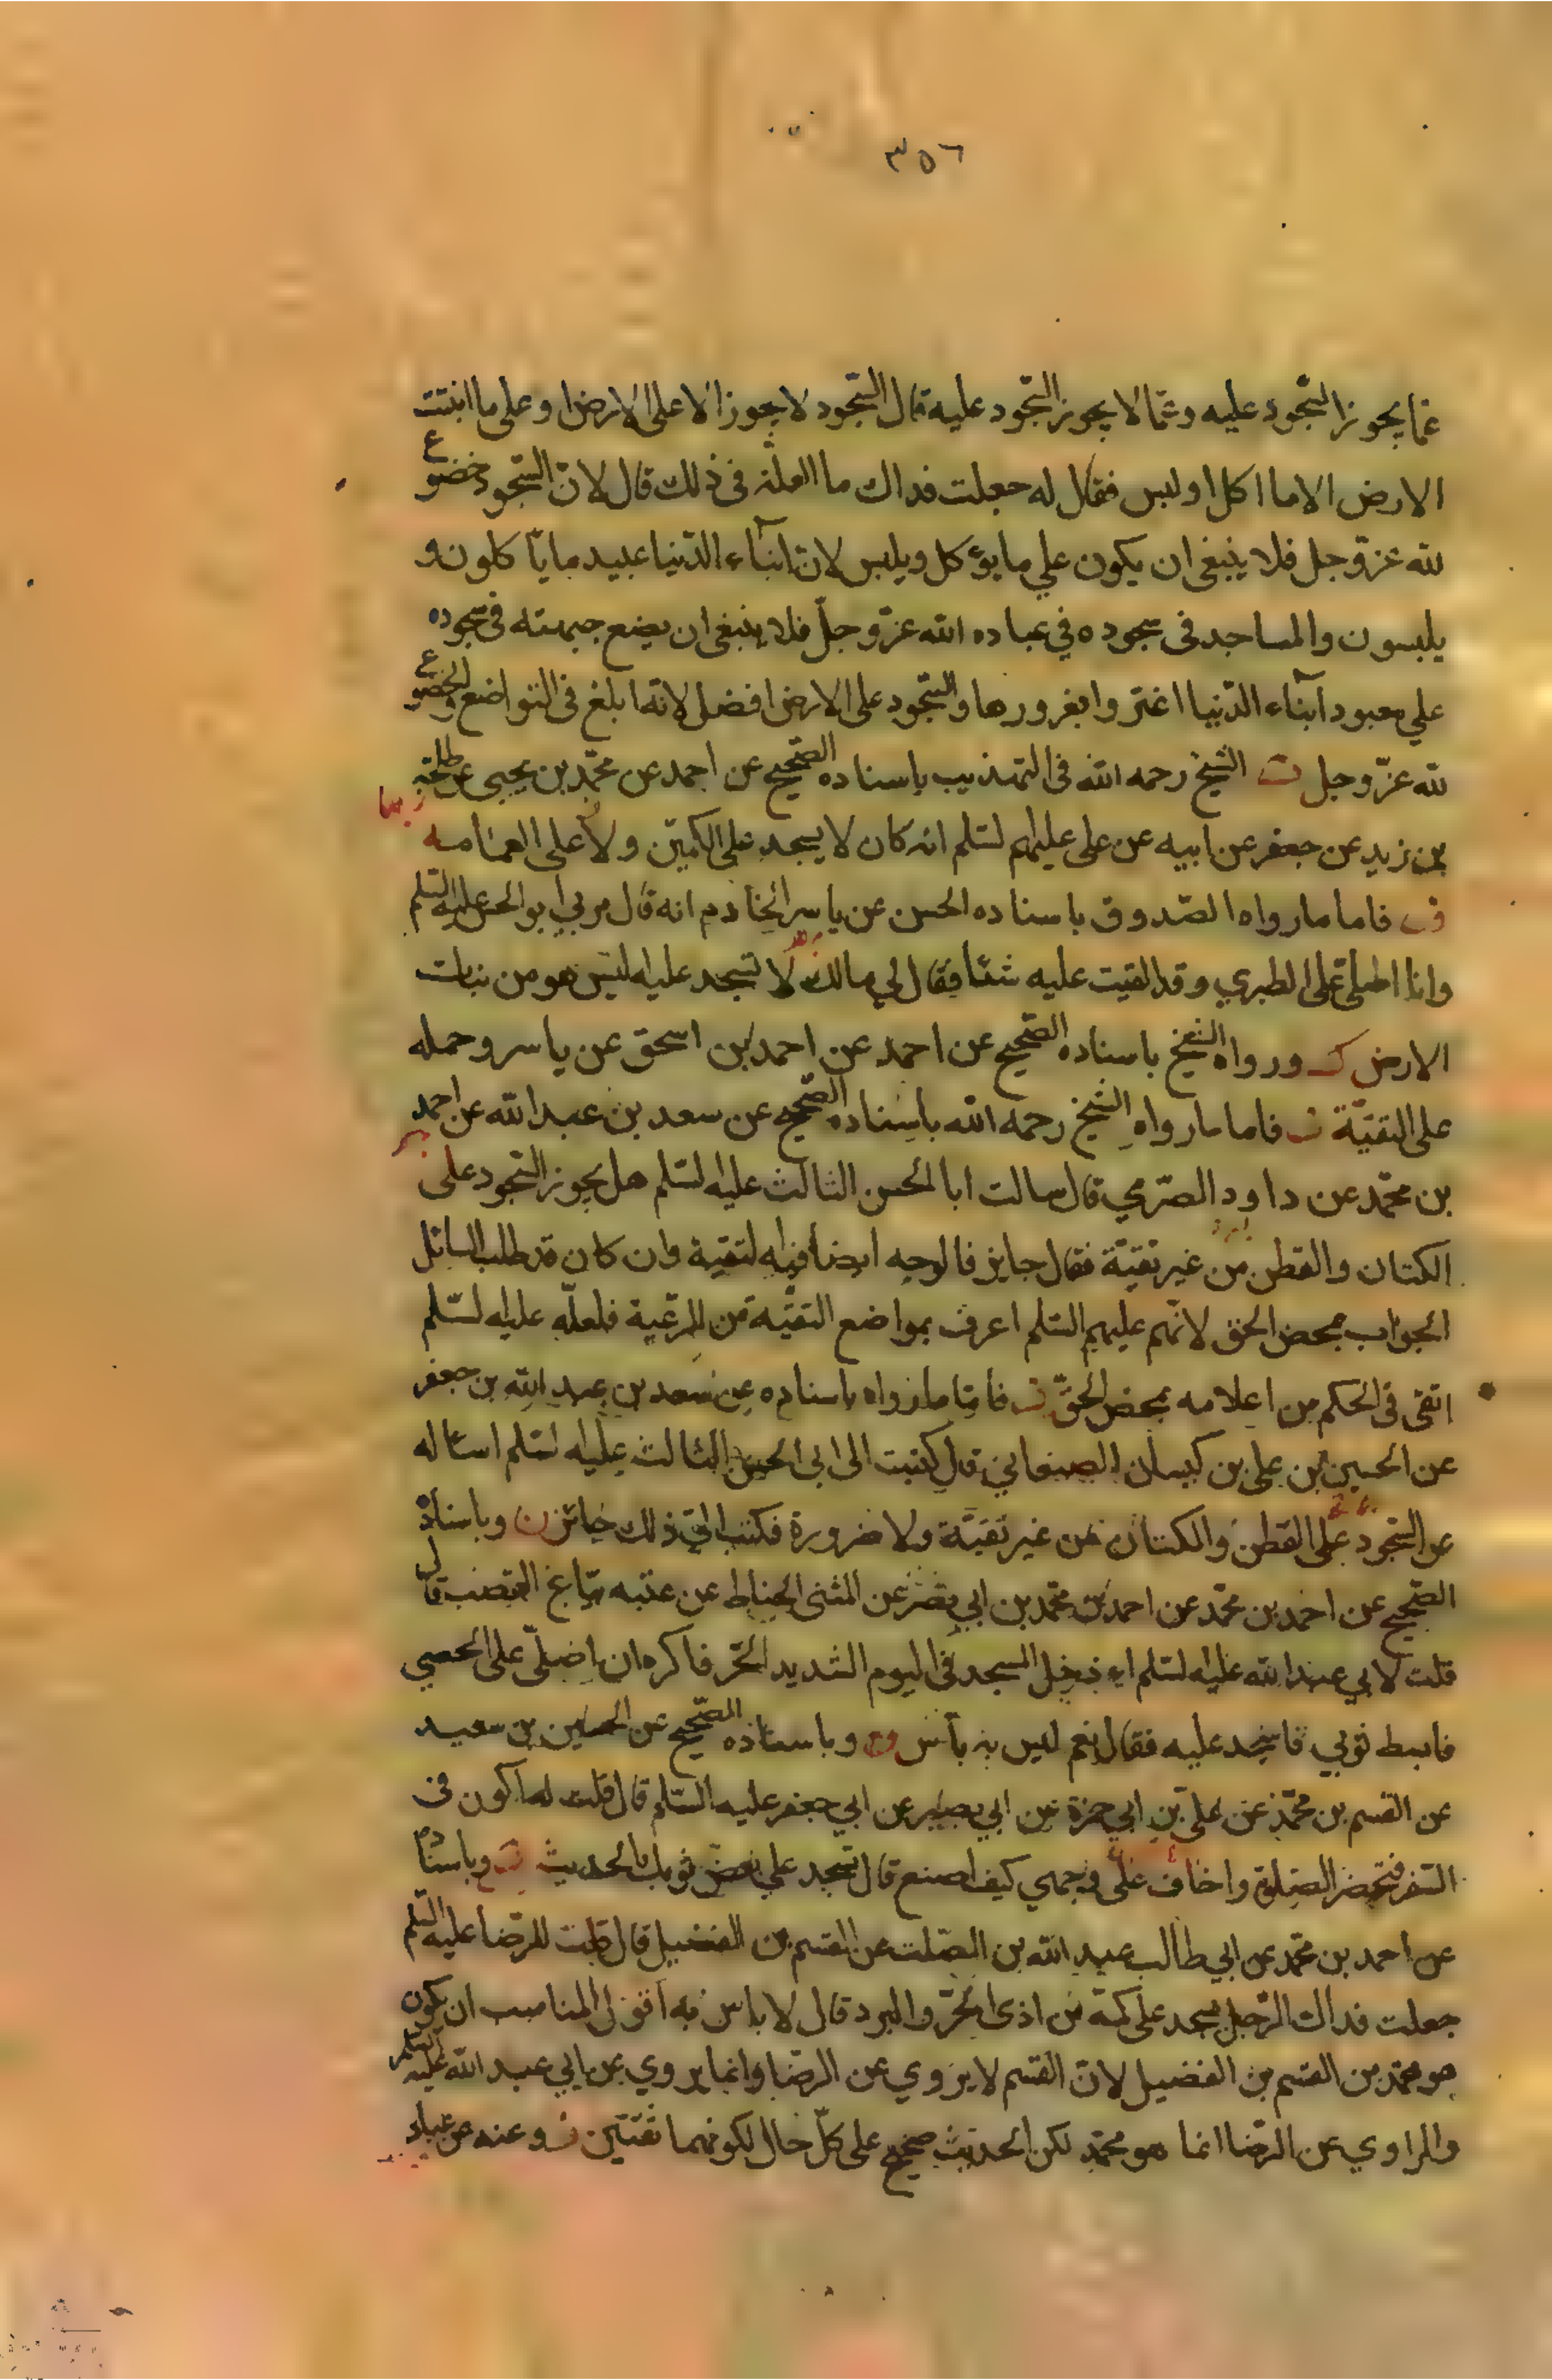 ٣٥٦
عما يجوز السجود عليه وعما لا يجوز السجود عليه قال السجود لا يجوز الا على الارض او على ما انبتت
الارض الا ما اكل او لبس فقال له جعلت فداك ما العلة فى ذلك قال لان السجود خضوع
لله عزّ وجل فلا ينبغى ان يكون علي ما يؤكل ويلبس لان ابنآء الدّنيا عبيد ما ياكلون و
يلبسون والساجد فى سجوده في عباده الله عزّ وجلّ فلا ينبغى ان يضع جبهته فى سجوده
علي معبود ابنآء الدّنيا اغتروا بغرورها والسّجود على الارض افضل لانه ابلغ فى التواضع والخضوع
لله عزّ وجل الشيخ رحمه الله فى التهذيب باسناده الصّحيح عن احمد عن محمّد بن يحيى عن طلحة
بن زيد عن جعفر عن ابيه عن على عليهم لسّلم انه كان لا يسجد على الكمين ولا على العمامه
فاما ما رواه الصّدوق باسناده الحسن عن ياسر الخادم انه قال مر بي ابو الحسن عليه السّلم
وانا اصلى على الطبري وقد القيت عليه شئا فقال لي مالك لا تسجد عليه ليس هو من نبات
الارض ورواه الشيخ باسناده الصّحيح عن احمد عن احمد بن اسحق عن ياسر وحمله
على التقيّة فاما ما رواه الشيخ رحمه الله باسناده الصّحيح عن سعد بن عبد الله عن احمد
بن محمّد عن داود الصّرمي قال سالت ابا الحسن الثالث عليه لسّلم هل يجوز السّجود على
الكتان والقطن من غير تقيّة فقال جايز فالوجه ايضا فيه لتقية وان كان قد طلب السائل
الجواب بمحض الحق لانهم عليهم السّلم اعرف بمواضع التقيّة من الرعية فلعلّه عليه لسّلم
اتقى فى الحكم من اعلامه بمحض الحقّ فامّا ما رواه باسناده عن سعد بن عبد الله بن جعفر
عن الحسين بن على بن كيسان الصنعاني قال كتبت الى ابى الحسن الثالث عليه لسّلم اساله
عن السّجود على القطن والكتان من غير تقيّة ولا ضرورة فكتب الىّ ذلك جائز وباسناده
الصّحيح عن احمد بن محمّد عن احمد بن محمّد بن ابي نصر عن المثنى الحناط عن عتبه بيّاع القصب قال
قلت لابي عبد الله عليه لسّلم ادخل المسجد فى اليوم الشديد الحّر فاكره ان اصلّى على الحصي
فابسط ثوبي فاسجد عليه فقال نعم ليس به بأس وباسناده الصّحيح عن الحسين بن سعيد
عن القسم بن محمّد عن علىّ بن ابي حمزة عن ابي بصير عن ابي جعفر عليه السّلم قال قلت له اكون فى
السّفر فتحضر الصّلوة واخاف على وجهي كيف اصنع قال تسجد علي بعض ثوبك الحديث وباسناده
عن احمد بن محمّد عن ابي طالب عبد الله بن الصّلت عن القسم بن الفضيل قال قلت للرّضا عليه السّلم
جعلت فداك الرّجل يسجد على كمّه من اذى الحّر والبرد قال لا باس به اقول المناسب ان يكون
هو محمّد بن القسم بن الفضيل لانّ القسم لا يروي عن الرضا وانما يروي عن ابي عبد الله عليه السّلم
والراوي عن الرضا انما هو محمّد لكن الحديث صحيح على كلّ حال لكونهما ثقتين وعنه عن عباد